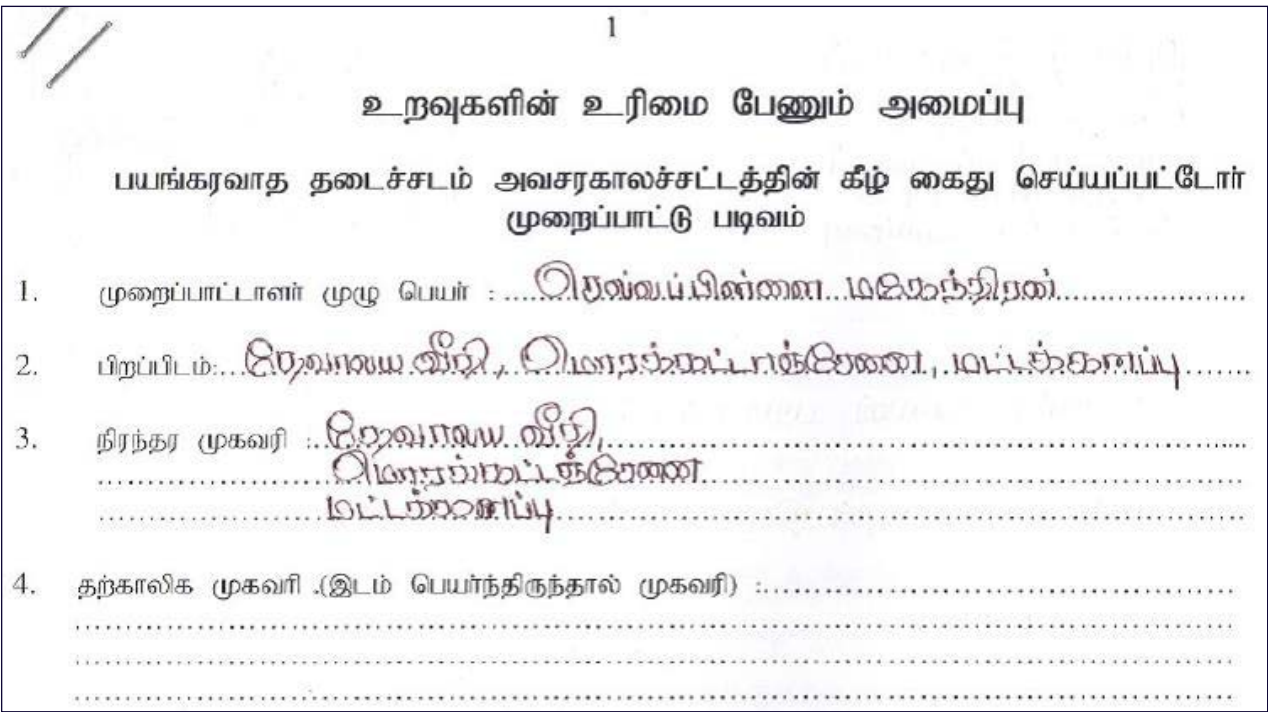 1
உறவுகளின் உரிமை பேணும் அமைப்பு
பயங்கரவாத தடைச்சடம் அவசரகாலச்சட்டத்தின் கீழ் கைது செய்யப்பட்டோர்
முறைப்பாட்டு படிவம்
1. முறைப்பாட்டாளர் முழு பெயர் : செல்லப்பிள்ளை மகேந்திரன்
2. பிறப்பிடம்: தேவாலய வீதி, மொறக்கட்டாஞ்சேனை, மட்டக்களப்பு
3. நிரந்தர முகவரி : தேவாலய வீதி,
மொறக்கட்டஞ்சேனை
மட்டக்களப்பு
4. தற்காலிக முகவரி .(இடம் பெயர்ந்திருந்தால் முகவரி) :